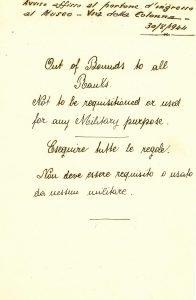 Avviso affisso al portone d'ingresso
al Museo - Via della Colonna -
30/8/1944
Out of Bounds to all
Ranks.
Not to be requisitioned or used
for any Military purpose.
Eseguire tutte le regole.
Non deve essere requisito o usato
da nessun militare.